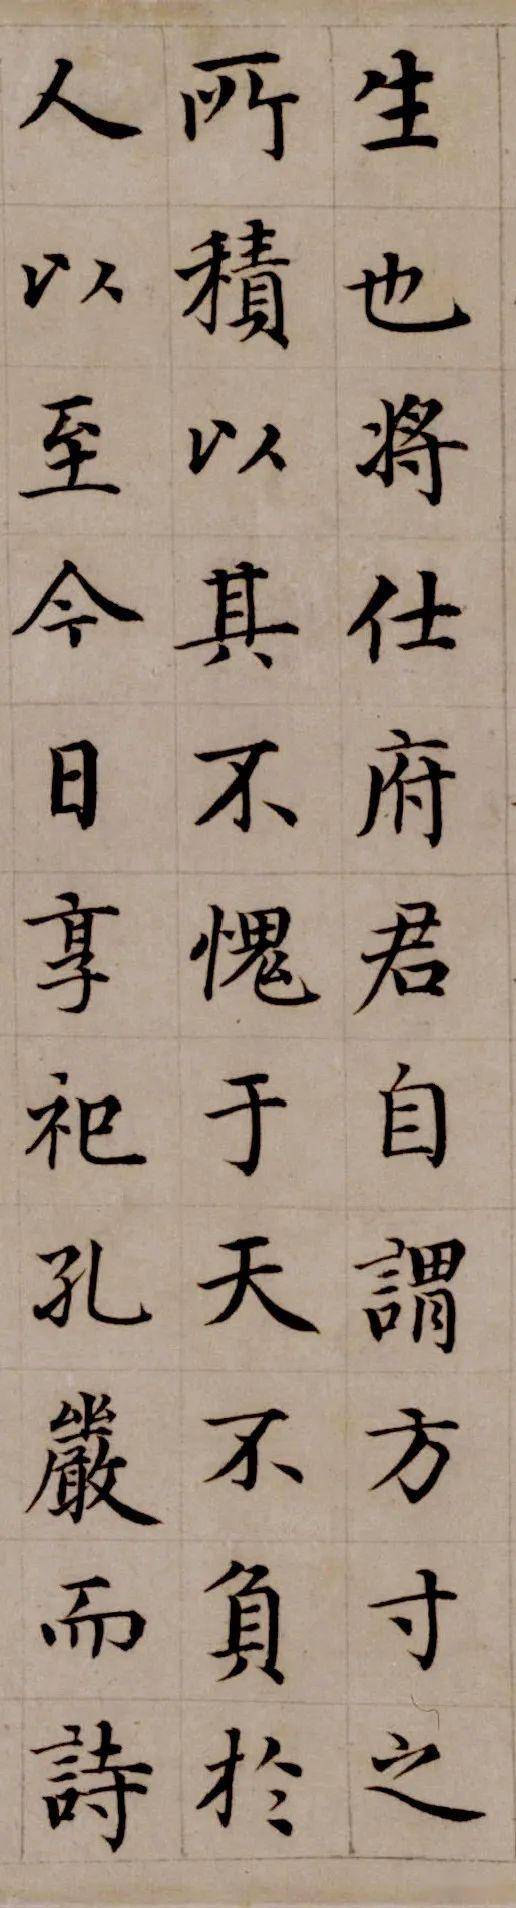 生也將仕府君自謂方寸之
所積以其不愧于天不負於
人以至今日享祀孔嚴而詩